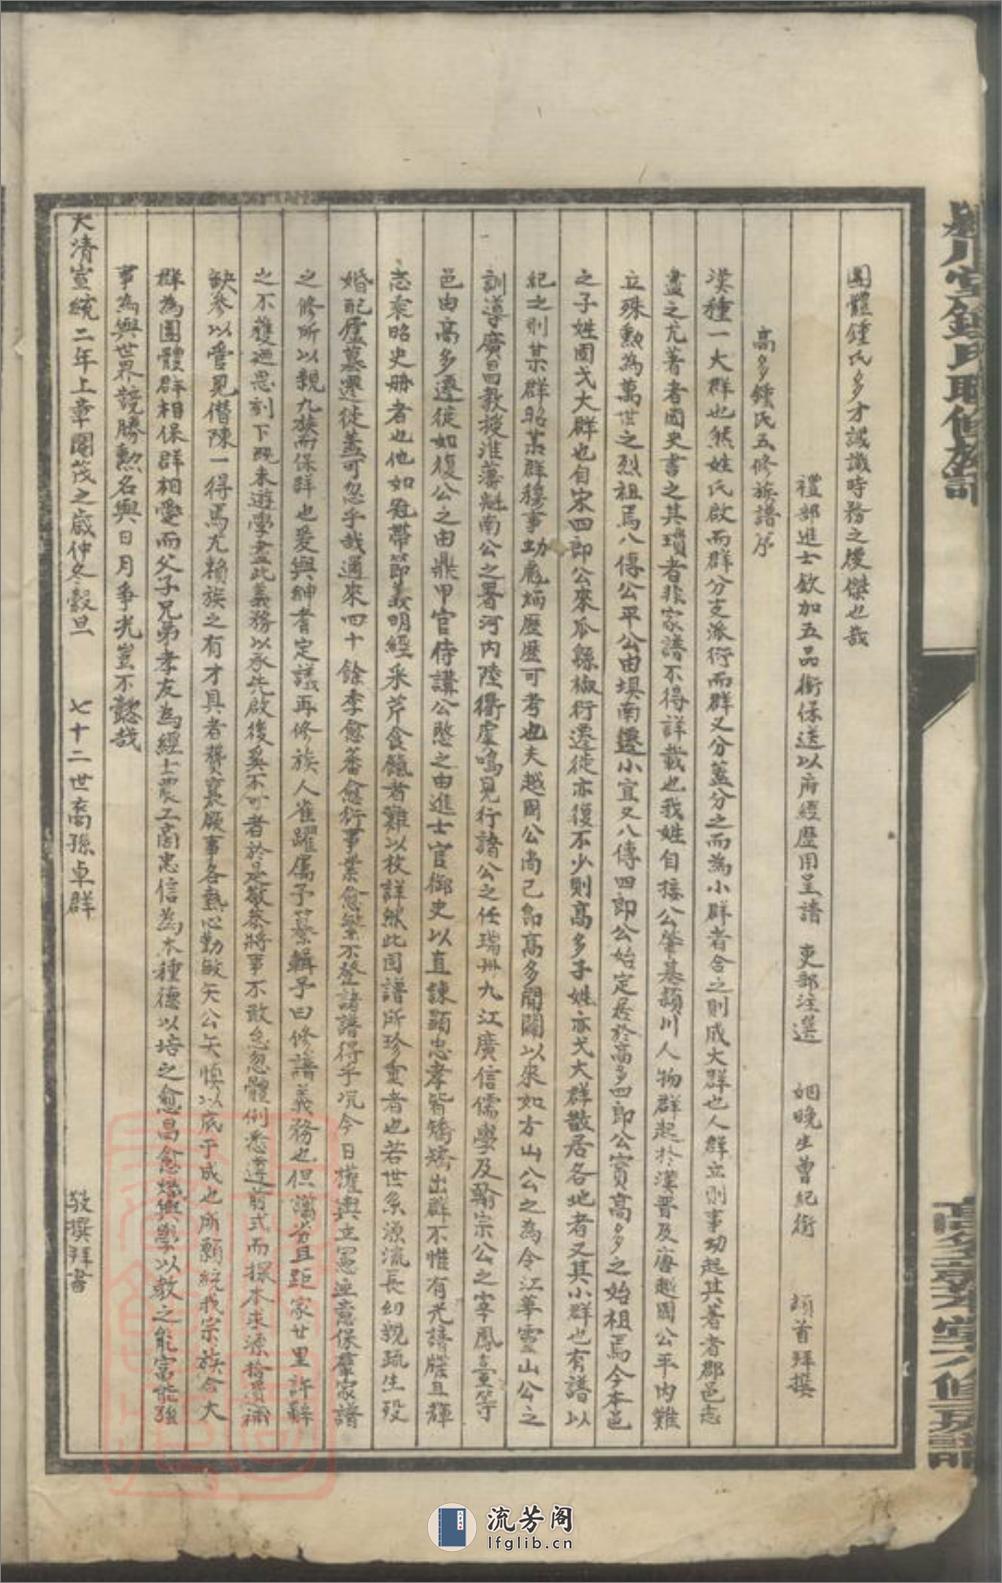 團體鍾氏多才誠識時務之俊傑也哉
禮部進士欽加五品銜保送以府經歷用呈請 吏部注選 姻晚生曾紀衡 頓首拜撰
高多鍾氏五修族譜序
漢種一大群也然姓氏啟而群分支派衍而群又分蓋分之而為小群者合之則成大群也人群立則事功起其著者郡邑志
盡之尤著者國史書之其瑣者非家譜不得詳載也我姓自接公肇基潁川人物群起於漢晋及唐越國公平內難
立殊勲為萬世之烈祖焉八傳公平公由塤南遷小宜又八傳四郎公始定居於高多四郎公實高多之始祖焉今本邑
之子姓固弋大群也自宋四郎公來瓜縣椒衍遷徒亦復不少則高多子姓亦弋大群散居各地者又其小群也有譜以
紀之則某群昭某群穆事功彪炳歷歷可考也夫越國公尚已即高多開闢以來如方山公之為令江華雲山公之
訓導廣昌教授淮藩魁南公之署河內陸衢虞鳴見行諸公之任瑞州九江廣信儒學及翰宗公之宰鳳臺等
邑由高多遷徒如復公之由鼎甲官侍講公愍之由進士官御史以直諫顯忠孝皆矯矯出群不惟有光譜牒且輝
志乘昭史册者也他如冠帶節義明經采芹食餼者難以枚詳然此固譜所珍重者也若世系源流長幼親疏生歿
婚配廬墓遷徒蓋可忽乎哉邇來四十餘季愈蕃愈衍事業愈繁不登諸譜得乎况今日權與立憲注意保羣家譜
之修所以親九族而保群也爰與紳耆定議再修族人雀躍属予纂輯予曰修譜義務也但譾劣且距家廿里許辭
之不獲迴思刻下既未遊學盡此義務以承先啟後奚不可者於是敬恭將事不敢怠忽體例悉遵前式而探本求源拾貴濔
缺参以管見僭陳一得焉尤賴族之有才具者贊襄厥事各熱心勤敏矢公矢慎以底于成也所願統我宗族合大
群為團體群相保群相愛而父子兄弟孝友為經士農工商忠信為本種德以培之愈昌愈熾興學以教之能富能强
事為與世界競勝勲名與日月争光豈不懿哉
大清宣統二年上章閹茂之歲仲冬穀旦 七十二世裔孫卓群 敬撰拜書
潁川堂鍾氏聯修族譜
流芳阁
lfglib.cn